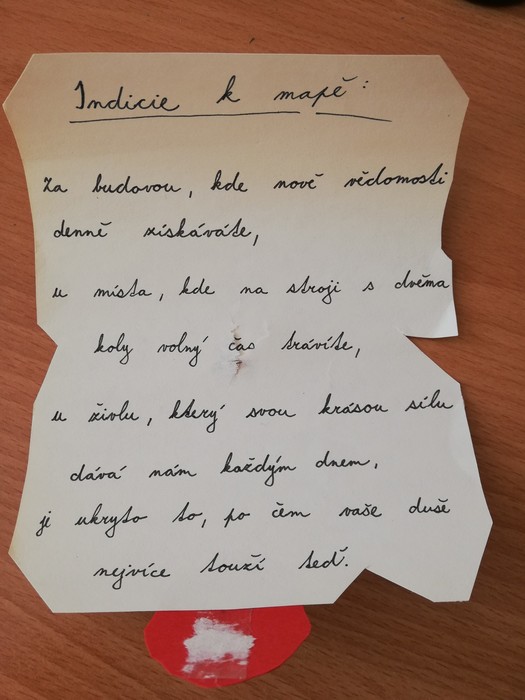 Indicie k mapě:
Za budovou, kde nové vědomosti
denně získáváte,
u místa, kde na stroji s dvěma
koly volný čas trávíte,
u živlu, který svou krásou sílu
dává nám každým dnem,
je ukryto to, po čem vaše duše
nejvíce touží teď.